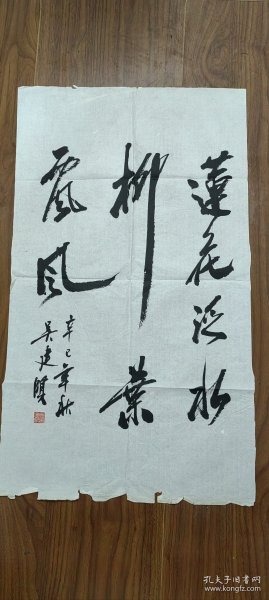 蓮花泛水
柳葉
飄风
辛巳年秋
吴建贤
孔夫子旧书网
www.kongfz.com